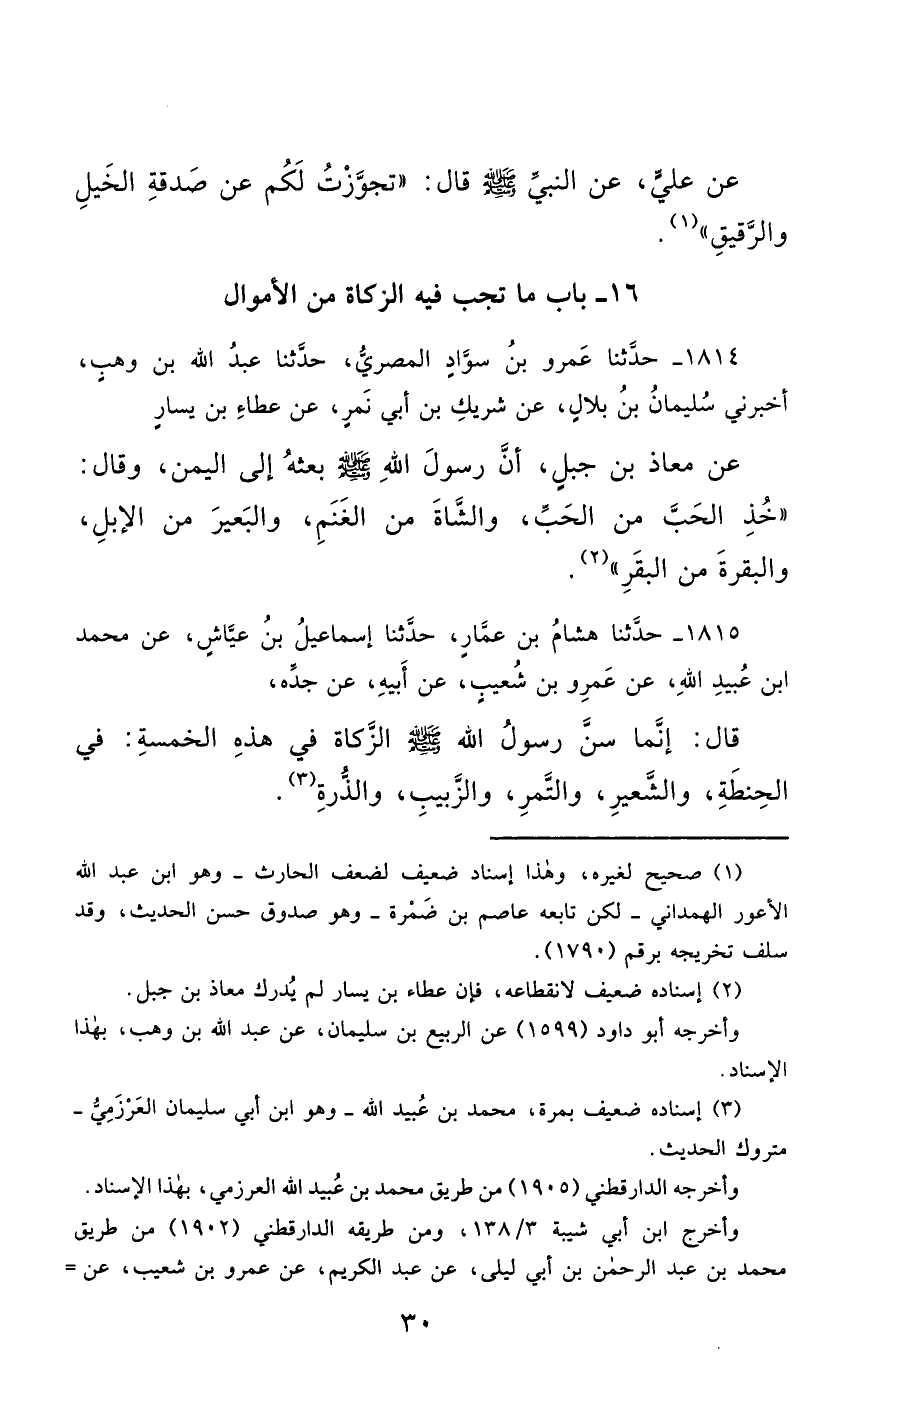 عن عليٍّ، عن النبيِّ ﷺ قال: «تجوَّزْتُ لَكُم عن صَدقةِ الخَيلِ
والرَّقيقِ»(١).
١٦- باب ما تجب فيه الزكاة من الأموال
١٨١٤- حدَّثنا عَمرو بنُ سوَّادٍ المصريُّ، حدَّثنا عبدُ الله بن وهبٍ،
أخبرني سُليمانُ بنُ بلالٍ، عن شريكِ بن أبي نَمرٍ، عن عطاءِ بن يسارٍ
عن معاذ بن جبلٍ، أنَّ رسولَ اللهِ ﷺ بعثهُ إلى اليمن، وقال:
«خُذِ الحَبَّ من الحَبِّ، والشَّاةَ من الغَنَمِ، والبَعيرَ من الإبلِ،
والبقرةَ من البقَرِ»(٢).
١٨١٥- حدَّثنا هشامُ بن عمَّارٍ، حدَّثنا إسماعيلُ بنُ عيَّاشٍ، عن محمد
ابن عُبيدِ اللهِ، عن عَمرِو بن شُعيبٍ، عن أَبيهِ، عن جدِّه،
قال: إنَّما سنَّ رسولُ الله ﷺ الزَّكاة في هذهِ الخمسةِ: في
الحِنطَةِ، والشَّعيرِ، والتَّمرِ، والزَّبيبِ، والذُّرةِ(٣).
(١) صحيح لغيره، وهٰذا إسناد ضعيف لضعف الحارث - وهو ابن عبد الله
الأعور الهمداني - لكن تابعه عاصم بن ضَمْرة - وهو صدوق حسن الحديث، وقد
سلف تخريجه برقم (١٧٩٠).
(٢) إسناده ضعيف لانقطاعه، فإن عطاء بن يسار لم يُدرك معاذ بن جبل.
وأخرجه أبو داود (١٥٩٩) عن الربيع بن سليمان، عن عبد الله بن وهب، بهٰذا
الإسناد.
(٣) إسناده ضعيف بمرة، محمد بن عُبيد الله - وهو ابن أبي سليمان العَرْزَمِيُّ -
متروك الحديث.
وأخرجه الدارقطني (١٩٠٥) من طريق محمد بن عُبيد الله العرزمي، بهٰذا الإسناد.
وأخرج ابن أبي شيبة ١٣٨/٣، ومن طريقه الدارقطني (١٩٠٢) من طريق
محمد بن عبد الرحمٰن بن أبي ليلى، عن عبد الكريم، عن عمرو بن شعيب، عن =
٣٠